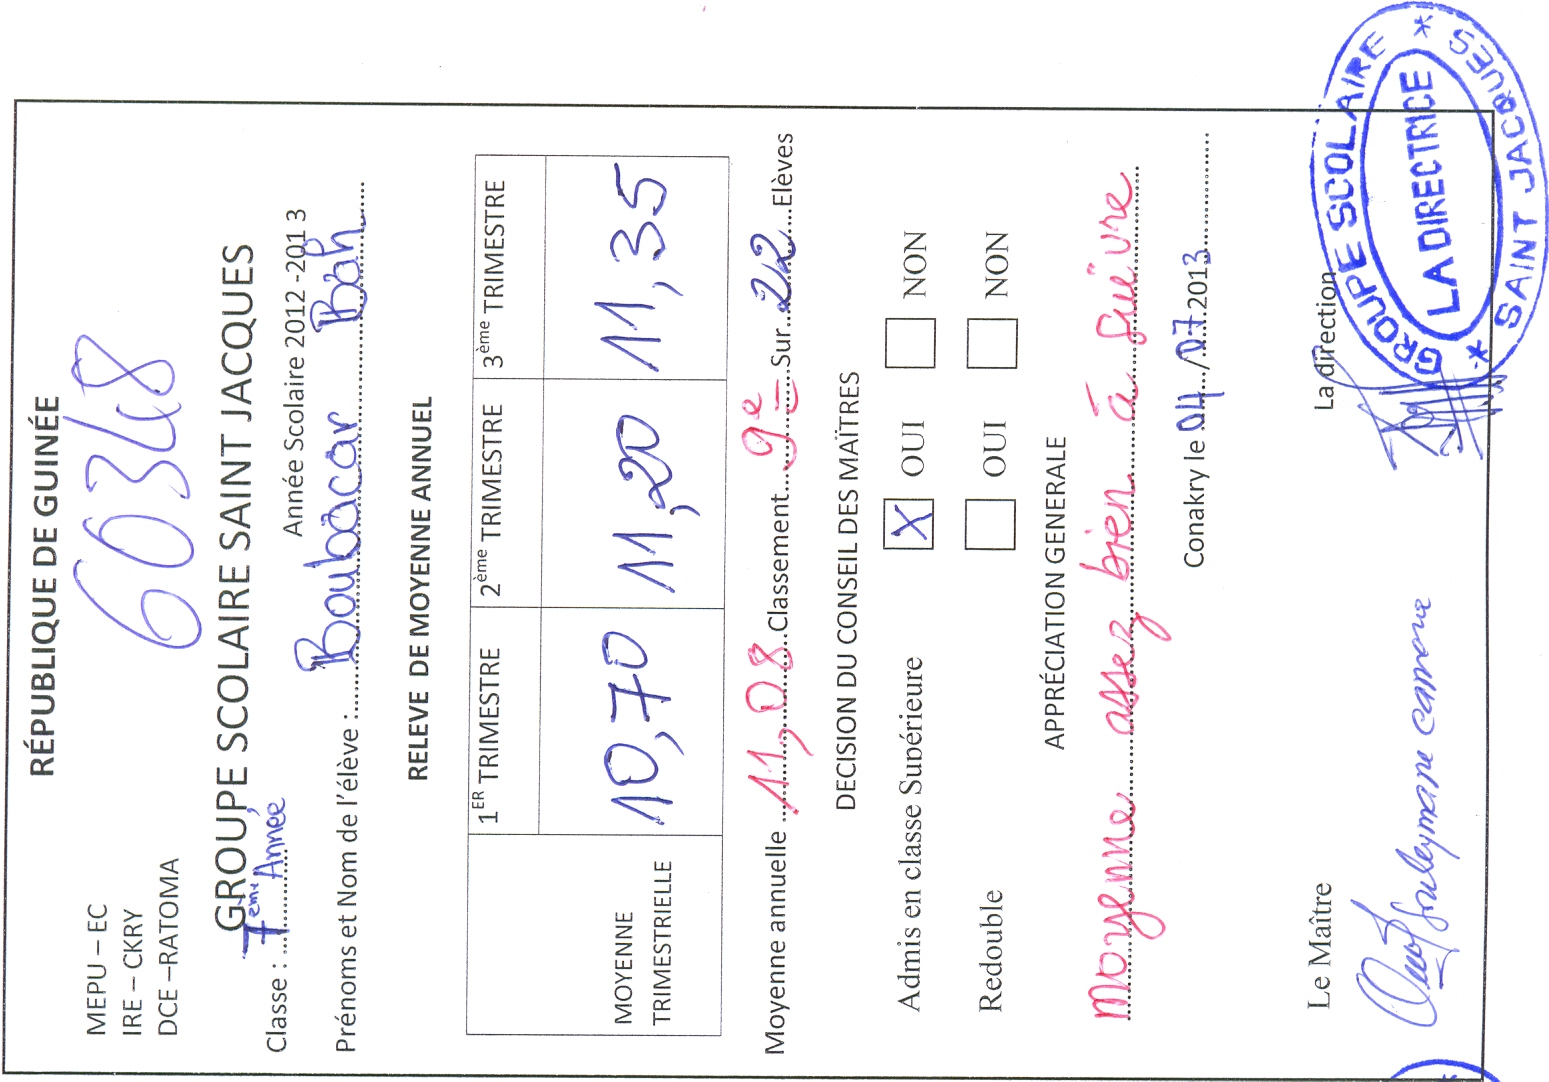 RÉPUBLIQUE DE GUINÉE
MEPU – EC
IRE – CKRY
DCE –RATOMA
60348
GROUPE SCOLAIRE SAINT JACQUES
Classe : 7ème Année Année Scolaire 2012 -2013
Prénoms et Nom de l'élève : Boubacar Bah
RELEVE DE MOYENNE ANNUEL
1ER TRIMESTRE 2ème TRIMESTRE 3ème TRIMESTRE
MOYENNE TRIMESTRIELLE 10,70 11,20 11,35
Moyenne annuelle 11,08 Classement 9e Sur 22 Elèves
DECISION DU CONSEIL DES MAÎTRES
Admis en classe Supérieure X OUI NON
Redouble OUI NON
APPRÉCIATION GENERALE
Moyenne assez bien à suivre
Conakry le 04/07 2013
Le Maître La direction
Souleymane camara
GROUPE SCOLAIRE * SAINT JACQUES *
LA DIRECTRICE